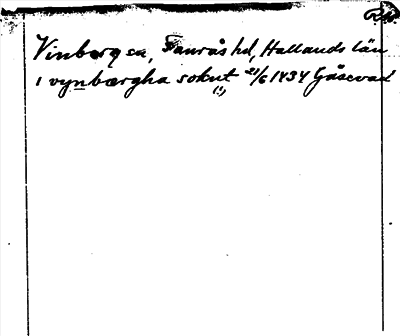 Vinberg sn, Faurås hd, Hallands län
i vynbærgha sokut 21/6 1434 Gåsevad
(!)